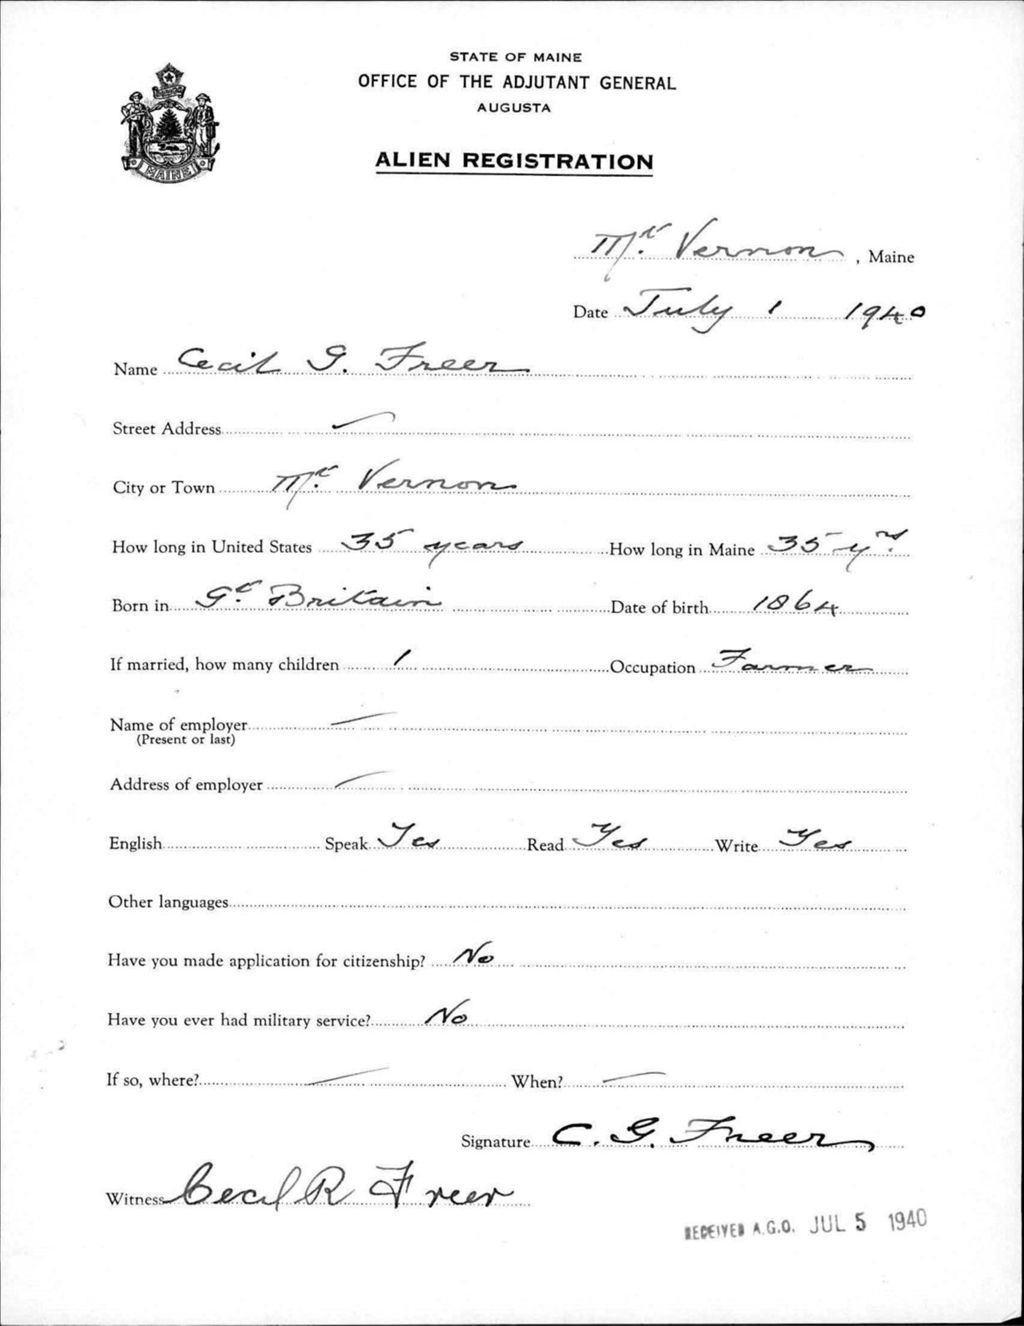 STATE OF MAINE
OFFICE OF THE ADJUTANT GENERAL
AUGUSTA
ALIEN REGISTRATION
MAINE
Mt. Vernon, Maine
Date July 1 1940
Name Cecil G. Freer
Street Address
City or Town Mt. Vernon
How long in United States 35 years How long in Maine 35 yrs.
Born in Gt Britain Date of birth 1864
If married, how many children 1 Occupation Farmer
Name of employer
(Present or last)
Address of employer
English Speak Yes Read Yes Write Yes
Other languages
Have you made application for citizenship? No
Have you ever had military service? No
If so, where? When?
Signature C. G. Freer
Witness Cecil R Freer
RECEIVED A.G.O. JUL 5 1940